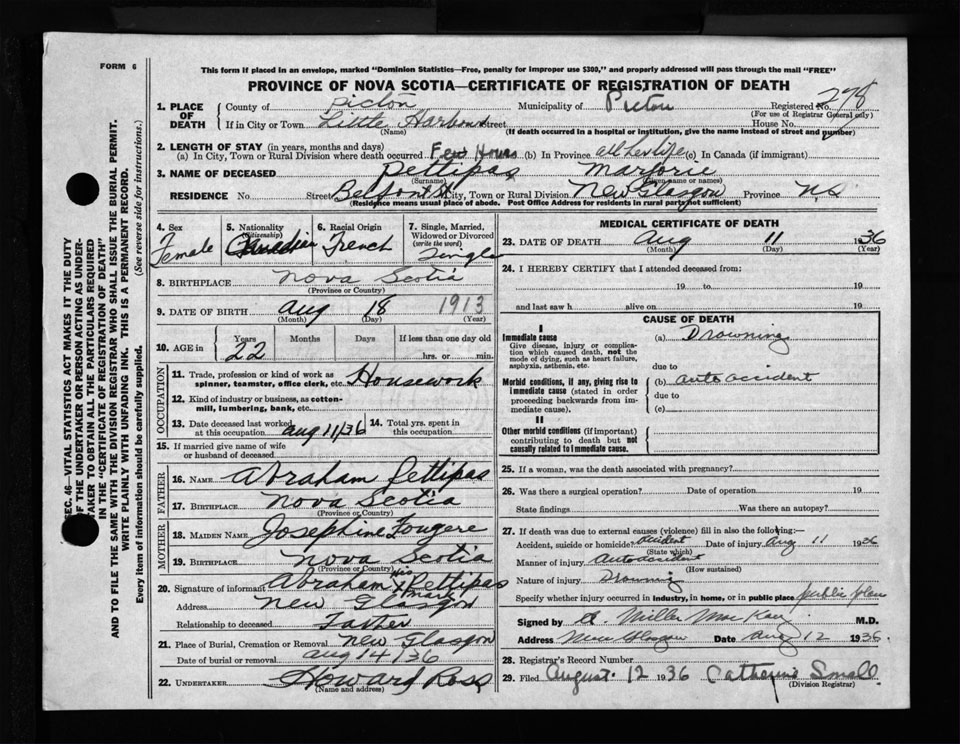 FORM 6
This form if placed in an envelope, marked "Dominion Statistics—Free, penalty for improper use $300," and properly addressed will pass through the mail "FREE"
PROVINCE OF NOVA SCOTIA—CERTIFICATE OF REGISTRATION OF DEATH
1. PLACE OF DEATH
County of Pictou Municipality of Pictou Registered No. 278
(For use of Registrar General only)
If in City or Town Little Harbour Street House No.
(Name) (If death occurred in a hospital or institution, give the name instead of street and number)
2. LENGTH OF STAY (in years, months and days)
(a) In City, Town or Rural Division where death occurred Few Hours (b) In Province all her life (c) In Canada (if immigrant)
3. NAME OF DECEASED Pettipas Marjorie
(Surname) (Given name or names)
RESIDENCE No. Street Belfont St City, Town or Rural Division New Glasgow Province N.S
(Residence means usual place of abode. Post Office Address for residents in rural parts not sufficient)
4. Sex Female
5. Nationality (Citizenship) Canadian
6. Racial Origin French
7. Single, Married, Widowed or Divorced (write the word) Single
8. BIRTHPLACE Nova Scotia
(Province or Country)
9. DATE OF BIRTH Aug 18 1913
(Month) (Day) (Year)
10. AGE in Years 22 Months Days If less than one day old
hrs. or min.
OCCUPATION
11. Trade, profession or kind of work as spinner, teamster, office clerk, etc. Housework
12. Kind of industry or business, as cotton-mill, lumbering, bank, etc.
13. Date deceased last worked at this occupation Aug 11/36 14. Total yrs. spent in this occupation
15. If married give name of wife or husband of deceased
FATHER
16. NAME Abraham Pettipas
17. BIRTHPLACE Nova Scotia
(Province or Country)
MOTHER
18. MAIDEN NAME Josephine Fougere
19. BIRTHPLACE Nova Scotia
(Province or Country)
20. Signature of informant Abraham his X mark Pettipas
Address New Glasgow
Relationship to deceased Father
21. Place of Burial, Cremation or Removal New Glasgow
Date of burial or removal Aug 14/36
22. UNDERTAKER Howard Ross
(Name and address)
MEDICAL CERTIFICATE OF DEATH
23. DATE OF DEATH Aug 11 1936
(Month) (Day) (Year)
24. I HEREBY CERTIFY that I attended deceased from:
19 to 19
and last saw h alive on 19
CAUSE OF DEATH
I
Immediate cause (a) Drowning
Give disease, injury or complication which caused death, not the mode of dying, such as heart failure, asphyxia, asthenia, etc.
due to
Morbid conditions, if any, giving rise to immediate cause (stated in order proceeding backwards from immediate cause).
(b) auto accident
due to
(c)
II
Other morbid conditions (if important) contributing to death but not causally related to immediate cause.
25. If a woman, was the death associated with pregnancy?
26. Was there a surgical operation? Date of operation 19
State findings Was there an autopsy?
27. If death was due to external causes (violence) fill in also the following:—
Accident, suicide or homicide? Accident Date of injury Aug 11 1936
(State which)
Manner of injury Auto accident
(How sustained)
Nature of injury Drowning
Specify whether injury occurred in industry, in home, or in public place public place
Signed by A. Miller MacKay M.D.
Address New Glasgow Date Aug 12 1936.
28. Registrar's Record Number
29. Filed August 12 1936 Catherine Small
(Division Registrar)
SEC. 46—VITAL STATISTICS ACT MAKES IT THE DUTY
OF THE UNDERTAKER OR PERSON ACTING AS UNDERTAKER TO OBTAIN ALL THE PARTICULARS REQUIRED
IN THE "CERTIFICATE OF REGISTRATION OF DEATH"
AND TO FILE THE SAME WITH THE DIVISION REGISTRAR WHO SHALL ISSUE THE BURIAL PERMIT.
WRITE PLAINLY WITH UNFADING INK. THIS IS A PERMANENT RECORD.
Every item of information should be carefully supplied. (See reverse side for instructions.)